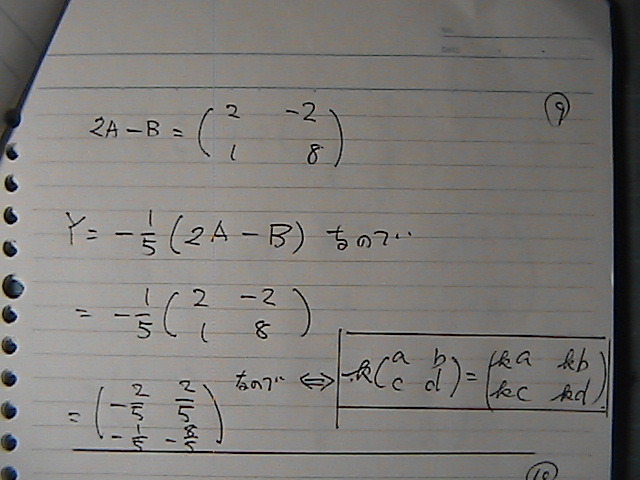 ⑨
2A-B = ( 2 -2
1 8 )
Y = -1/5 (2A-B) なので
= -1/5 ( 2 -2
1 8 )
= ( -2/5 2/5
-1/5 -8/5 ) なので ⇔ k( a b
c d ) = ( ka kb
kc kd )